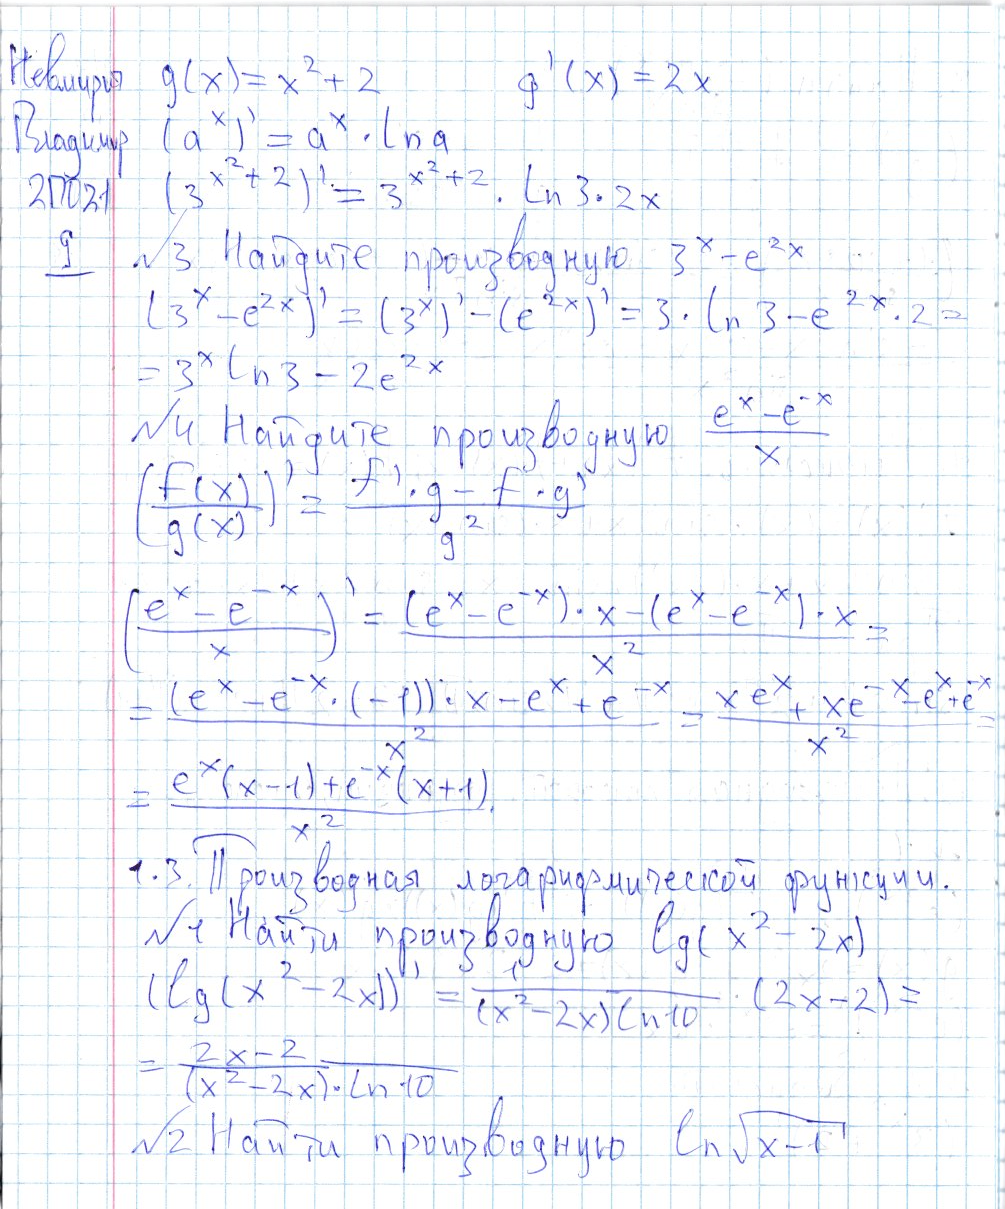 Невмирич
Владимир
2ПО21
9
g(x) = x² + 2 g'(x) = 2x
(aˣ)' = aˣ · ln a
(3^(x²+2))' = 3^(x²+2) · ln 3 · 2x
№3 Найдите производную 3ˣ - e^(2x)
(3ˣ - e^(2x))' = (3ˣ)' - (e^(2x))' = 3 · ln 3 - e^(2x) · 2 =
= 3ˣ ln 3 - 2e^(2x)
№4 Найдите производную (eˣ - e^(-x))/x
(f(x)/g(x))' = (f' · g - f · g')/g²
((eˣ - e^(-x))/x)' = ((eˣ - e^(-x)) · x - (eˣ - e^(-x)) · x)/x² =
= ((eˣ - e^(-x) · (-1)) · x - eˣ + e^(-x))/x² = (xeˣ + xe^(-x) - eˣ + e^(-x))/x² =
= (eˣ(x-1) + e^(-x)(x+1))/x².
1.3. Производная логарифмической функции.
№1 Найти производную lg(x² - 2x)
(lg(x² - 2x))' = 1/((x² - 2x) ln 10) · (2x - 2) =
= (2x - 2)/((x² - 2x) · ln 10)
№2 Найти производную ln √(x-1)